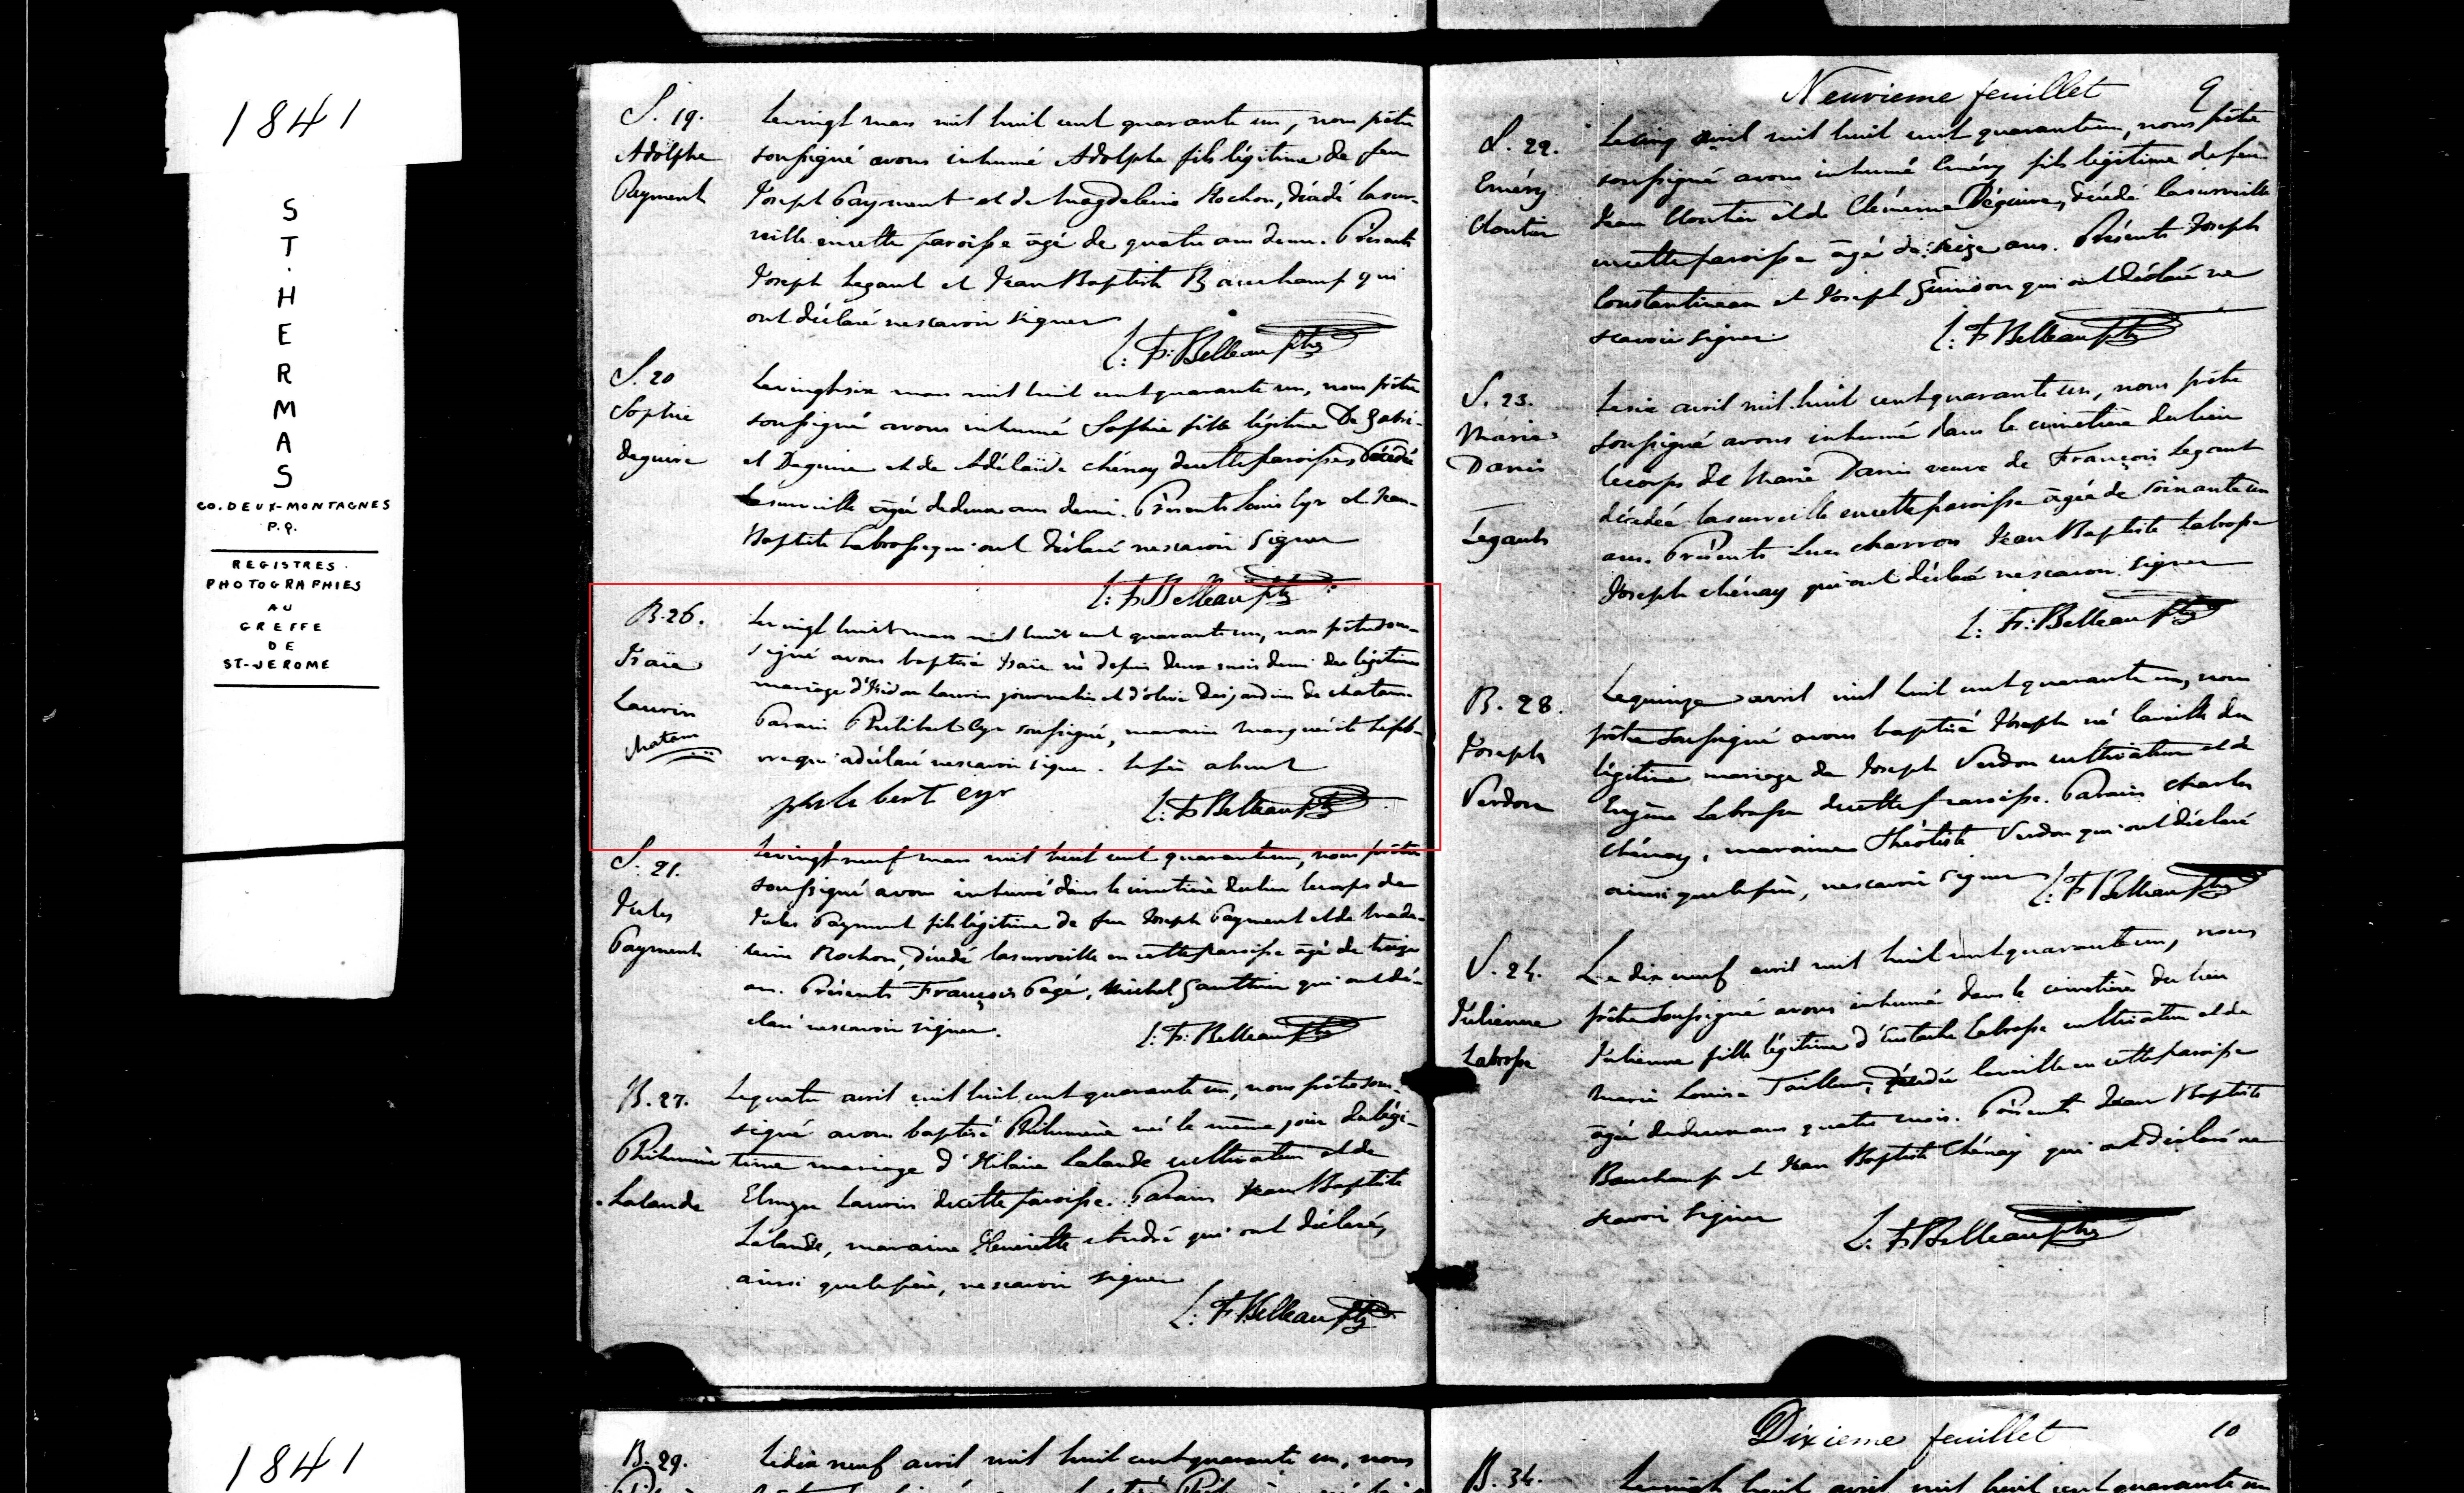 1841
ST. HERMAS
CO. DEUX-MONTAGNES
P.Q.
REGISTRES
PHOTOGRAPHIES
AU
GREFFE
DE
ST-JEROME
1841
S. 19.
Adolphe
Payment
Le vingt mars mil huit cent quarante un, nous prêtre
soussigné avons inhumé Adolphe fils légitime de feu
Joseph Payment et de Magdeleine Rochon, décédé la sur-
veille en cette paroisse âgé de quatre ans demi. Présents
Joseph Legault et Jean Baptiste Bauchamp qui
ont déclaré ne scavoir signer
L: F: Belleau ptre
S. 20
Sophie
Deguire
Le vingt six mars mil huit cent quarante un, nous prêtre
soussigné avons inhumé Sophie fille légitime De Gabri-
el Deguire et de Adélaïde chénay de cette paroisse, décédée
la surveille âgée de deux ans demi. Présents Louis Cyr et Jean-
Baptiste Labrosse qui ont déclaré ne scavoir signer
L: F Belleau ptre
B. 26.
Isaïe
Laurin
chatam
Le vingt huit mars mil huit cent quarante un, nous prêtre sous-
signé avons baptisé Isaïe né depuis deux mois demi du légitime
mariage d'Isidore Laurin journalier et d'olive Desjardins de chatam.
Parain Philibert Cyr soussigné, maraine Marguérite Lefeb-
vre qui a déclaré ne scavoir signer. le père absent
philebert cyr
L: F Belleau ptre
S. 21.
Jules
Payment
Le vingt neuf mars mil huit cent quarante un, nous prêtre
soussigné avons inhumé dans le cimetière du lieu le corps de
Jules Payment fils légitime de feu Joseph Payment et de Made-
leine Rochon, décédé la surveille en cette paroisse âgé de treize
ans. Présents François Pagé, Michel Gauthier qui ont dé-
claré ne scavoir signer.
L: F: Belleau ptre
B. 27.
Philumène
Lalande
Le quatre avril mil huit cent quarante un, nous prêtre sous-
signé avons baptisé Philumène né le même jour du légi-
time mariage d'Hilaire Lalande cultivateur et de
Laurin de cette paroisse. Parain Jean Baptiste
Lalande, maraine Henriette André qui ont déclaré,
ainsi que le père, ne scavoir signer
L: F Belleau ptre
B. 29.
Le dix neuf avril mil huit cent quarante un, nous
Neuvieme feuillet 9
S. 22.
Eméry
Cloutier
Le cinq avril mil huit cent quarante un, nous prêtre
soussigné avons inhumé Eméry fils légitime de feu
Jean Cloutier et de Clémence Déguire, décédé la surveille
en cette paroisse âgé de seize ans. Présents Joseph
Constantineau et Joseph Guindon qui ont déclaré ne
scavoir signer
L: F Belleau ptre
S. 23.
Marie
Danis
Legault
Le six avril mil huit cent quarante un, nous prêtre
soussigné avons inhumé dans le cimetière du lieu
le corps de Marie Danis veuve de François Legault
décédée la surveille en cette paroisse âgée de soixante un
ans. Présents Luc charron Jean Baptiste Labrosse
Joseph chénay qui ont déclaré ne scavoir signer
L: F: Belleau ptre
B. 28.
Joseph
Verdon
Le quinze avril mil huit cent quarante un, nous
prêtre soussigné avons baptisé Joseph né la veille du
légitime mariage de Joseph Verdon cultivateur et de
Labrosse de cette paroisse. Parain Charles
chénay, maraine Théotiste Verdon qui ont déclaré
ainsi que le père, ne scavoir signer
L: F Belleau ptre
S. 24.
Julienne
Labrosse
Le dix neuf avril mil huit cent quarante un, nous
prêtre soussigné avons inhumé dans le cimetière du lieu
Julienne fille légitime d'Eustache Labrosse cultivateur et de
Marie Louise Tailleur, décédée la veille en cette paroisse
âgée de deux ans quatre mois. Présents Jean Baptiste
Bauchamp et Jean Baptiste Chénay qui ont déclaré ne
scavoir signer
L: F Belleau ptre
Dixieme feuillet 10
B. 34.
Le vingt huit avril mil huit cent quarante un